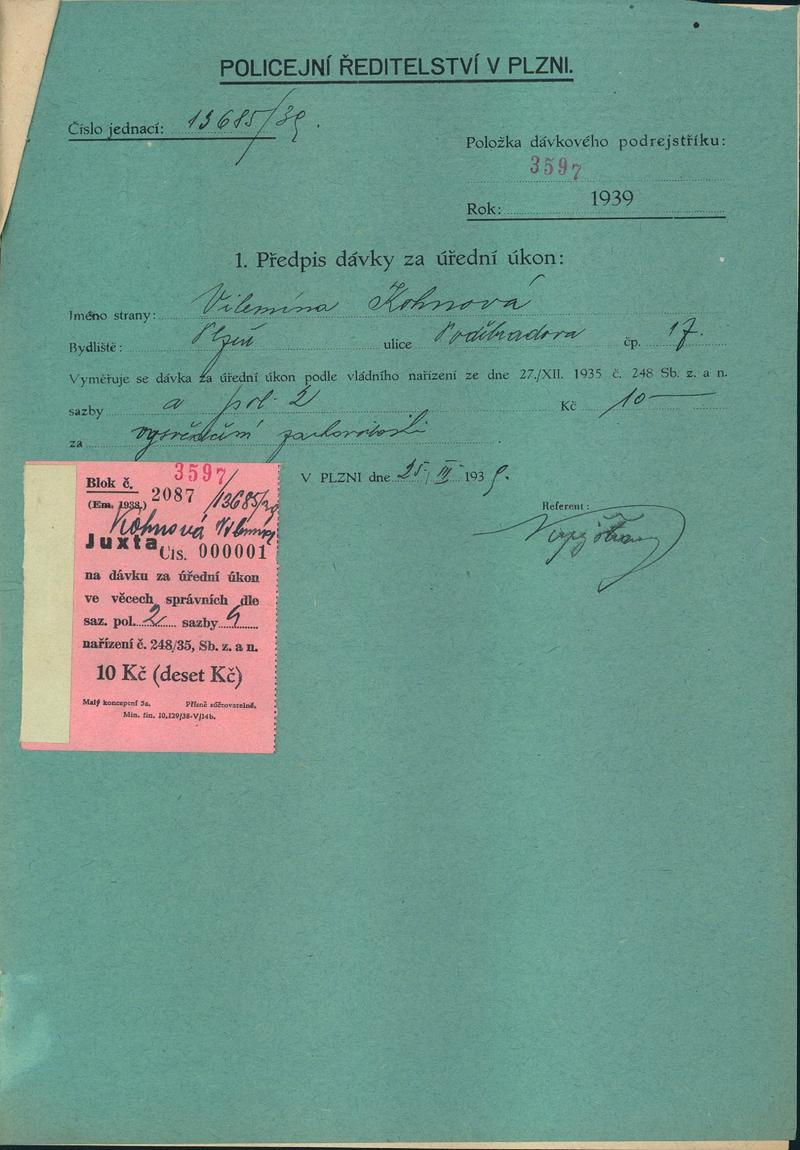 POLICEJNÍ ŘEDITELSTVÍ V PLZNI.
Číslo jednací: 13685/39.
Položka dávkového podrejstříku:
3597
Rok: 1939
1. Předpis dávky za úřední úkon:
Jméno strany: Vilemína Kohnová
Bydliště: Plzeň ulice Poděbradova čp. 17.
Vyměřuje se dávka za úřední úkon podle vládního nařízení ze dne 27./XII. 1935 č. 248 Sb. z. a n.
sazby a pol. 2 Kč 10—
za vysvědčení zachovalosti
V PLZNI dne 25/III 1939.
Referent:
3597
Blok č. 2087 /13685/39
(Em. 1938.)
Kohnová Vilemína
Juxta Čís. 000001
na dávku za úřední úkon
ve věcech správních dle
saz. pol. 2 sazby
nařízení č. 248/35, Sb. z. a n.
10 Kč (deset Kč)
Malý konceptní 5a. Přísně súčtovatelné.
Min. fin. 10.129/38-V/14b.